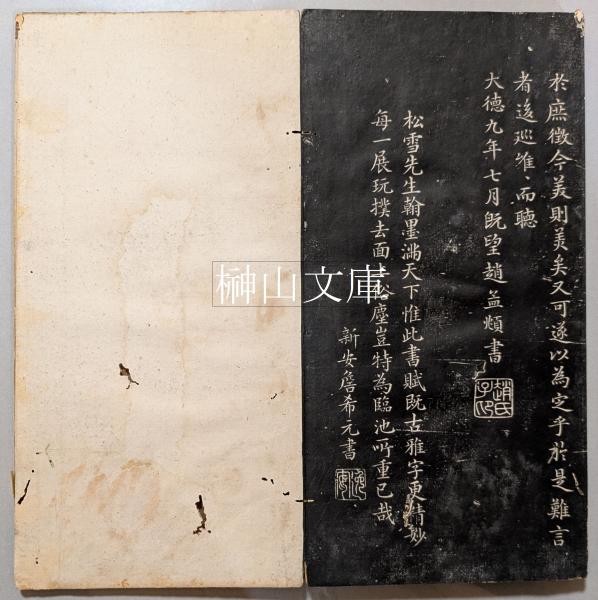 於庶徵今美則美矣又可遂以為定乎於是難言
者逡巡唯〻而聽
大德九年七月既望趙孟頫書
趙氏子印
松雪先生翰墨滿天下惟此書賦既古雅字更精妙
每一展玩撲去面上俗塵豈特為臨池所重已哉
新安詹希元書
榊山文庫